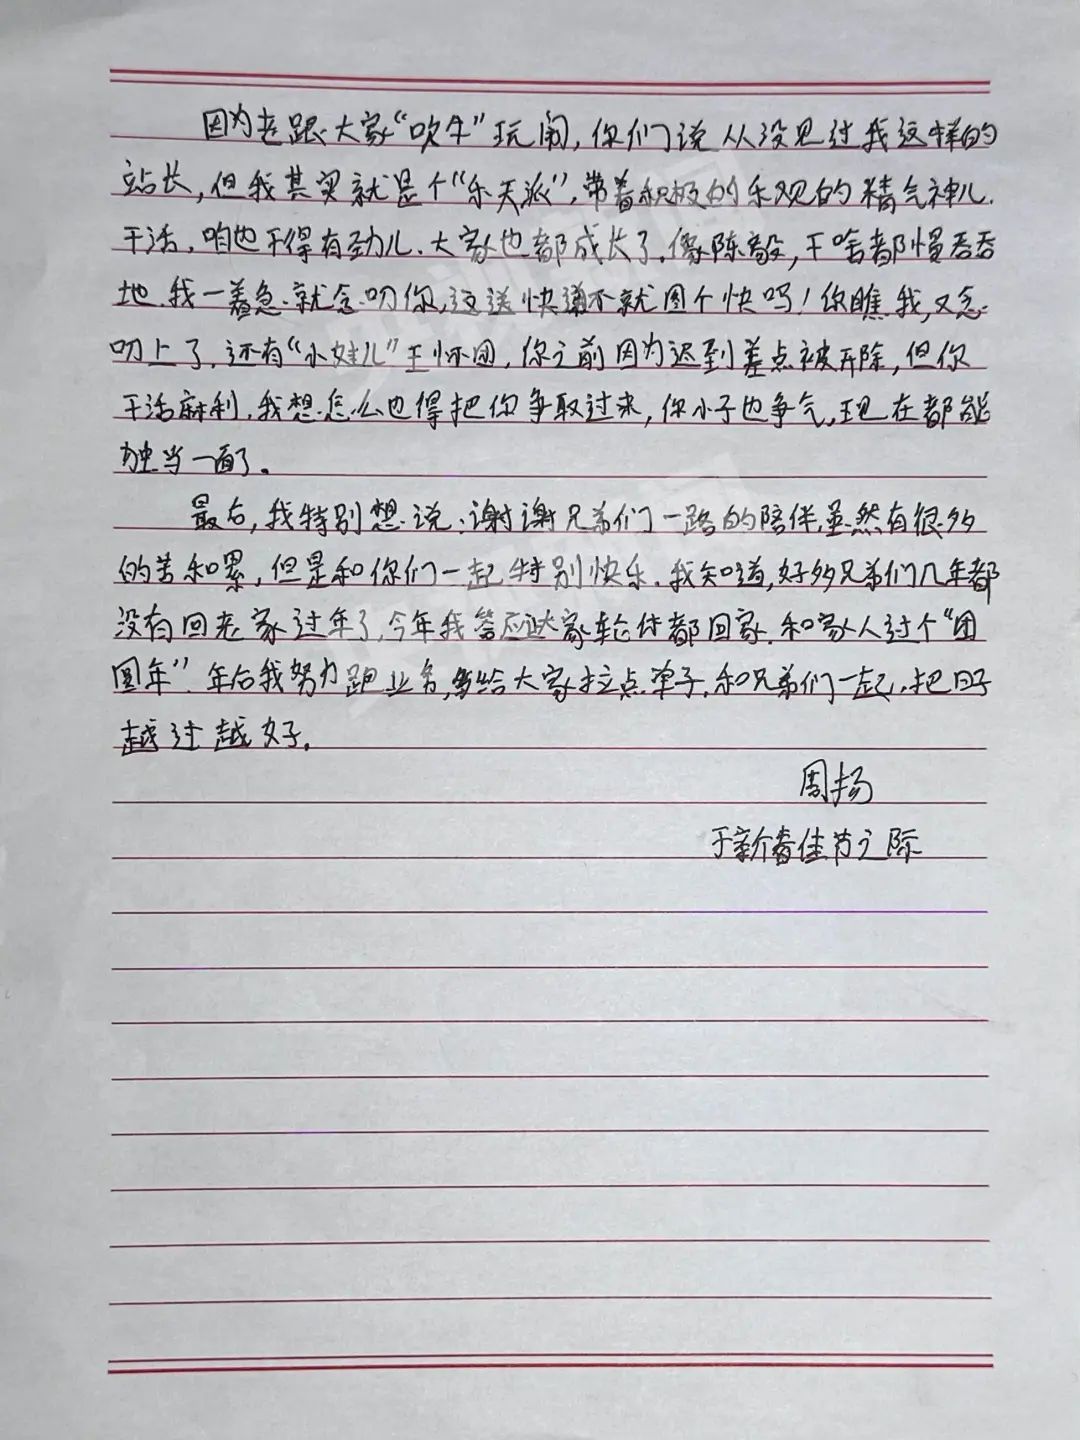 因为老跟大家“吹牛”玩闹，你们说从没见过我这样的
站长，但我其实就是个“乐天派”，带着积极的乐观的精气神儿，
干活，咱也干得有劲儿．大家也都成长了．像陈毅，干啥都慢吞吞
地．我一着急．就念叨你，这送快递不就图个快吗！你瞧我，又念
叨上了．还有“小娃儿”王怀国，你之前因为迟到差点被开除，但你
干活麻利．我想怎么也得把你争取过来，你小子也争气，现在都能
独当一面了．
最后，我特别想说：谢谢兄弟们一路的陪伴．虽然有很多
的苦和累，但是和你们一起特别快乐．我知道，好多兄弟们几年都
没有回老家过年了，今年我答应大家轮休都回家．和家人过个“团
圆年”．年后我努力跑业务，多给大家拉点单子．和兄弟们一起，把日子
越过越好．
周扬
于新春佳节之际